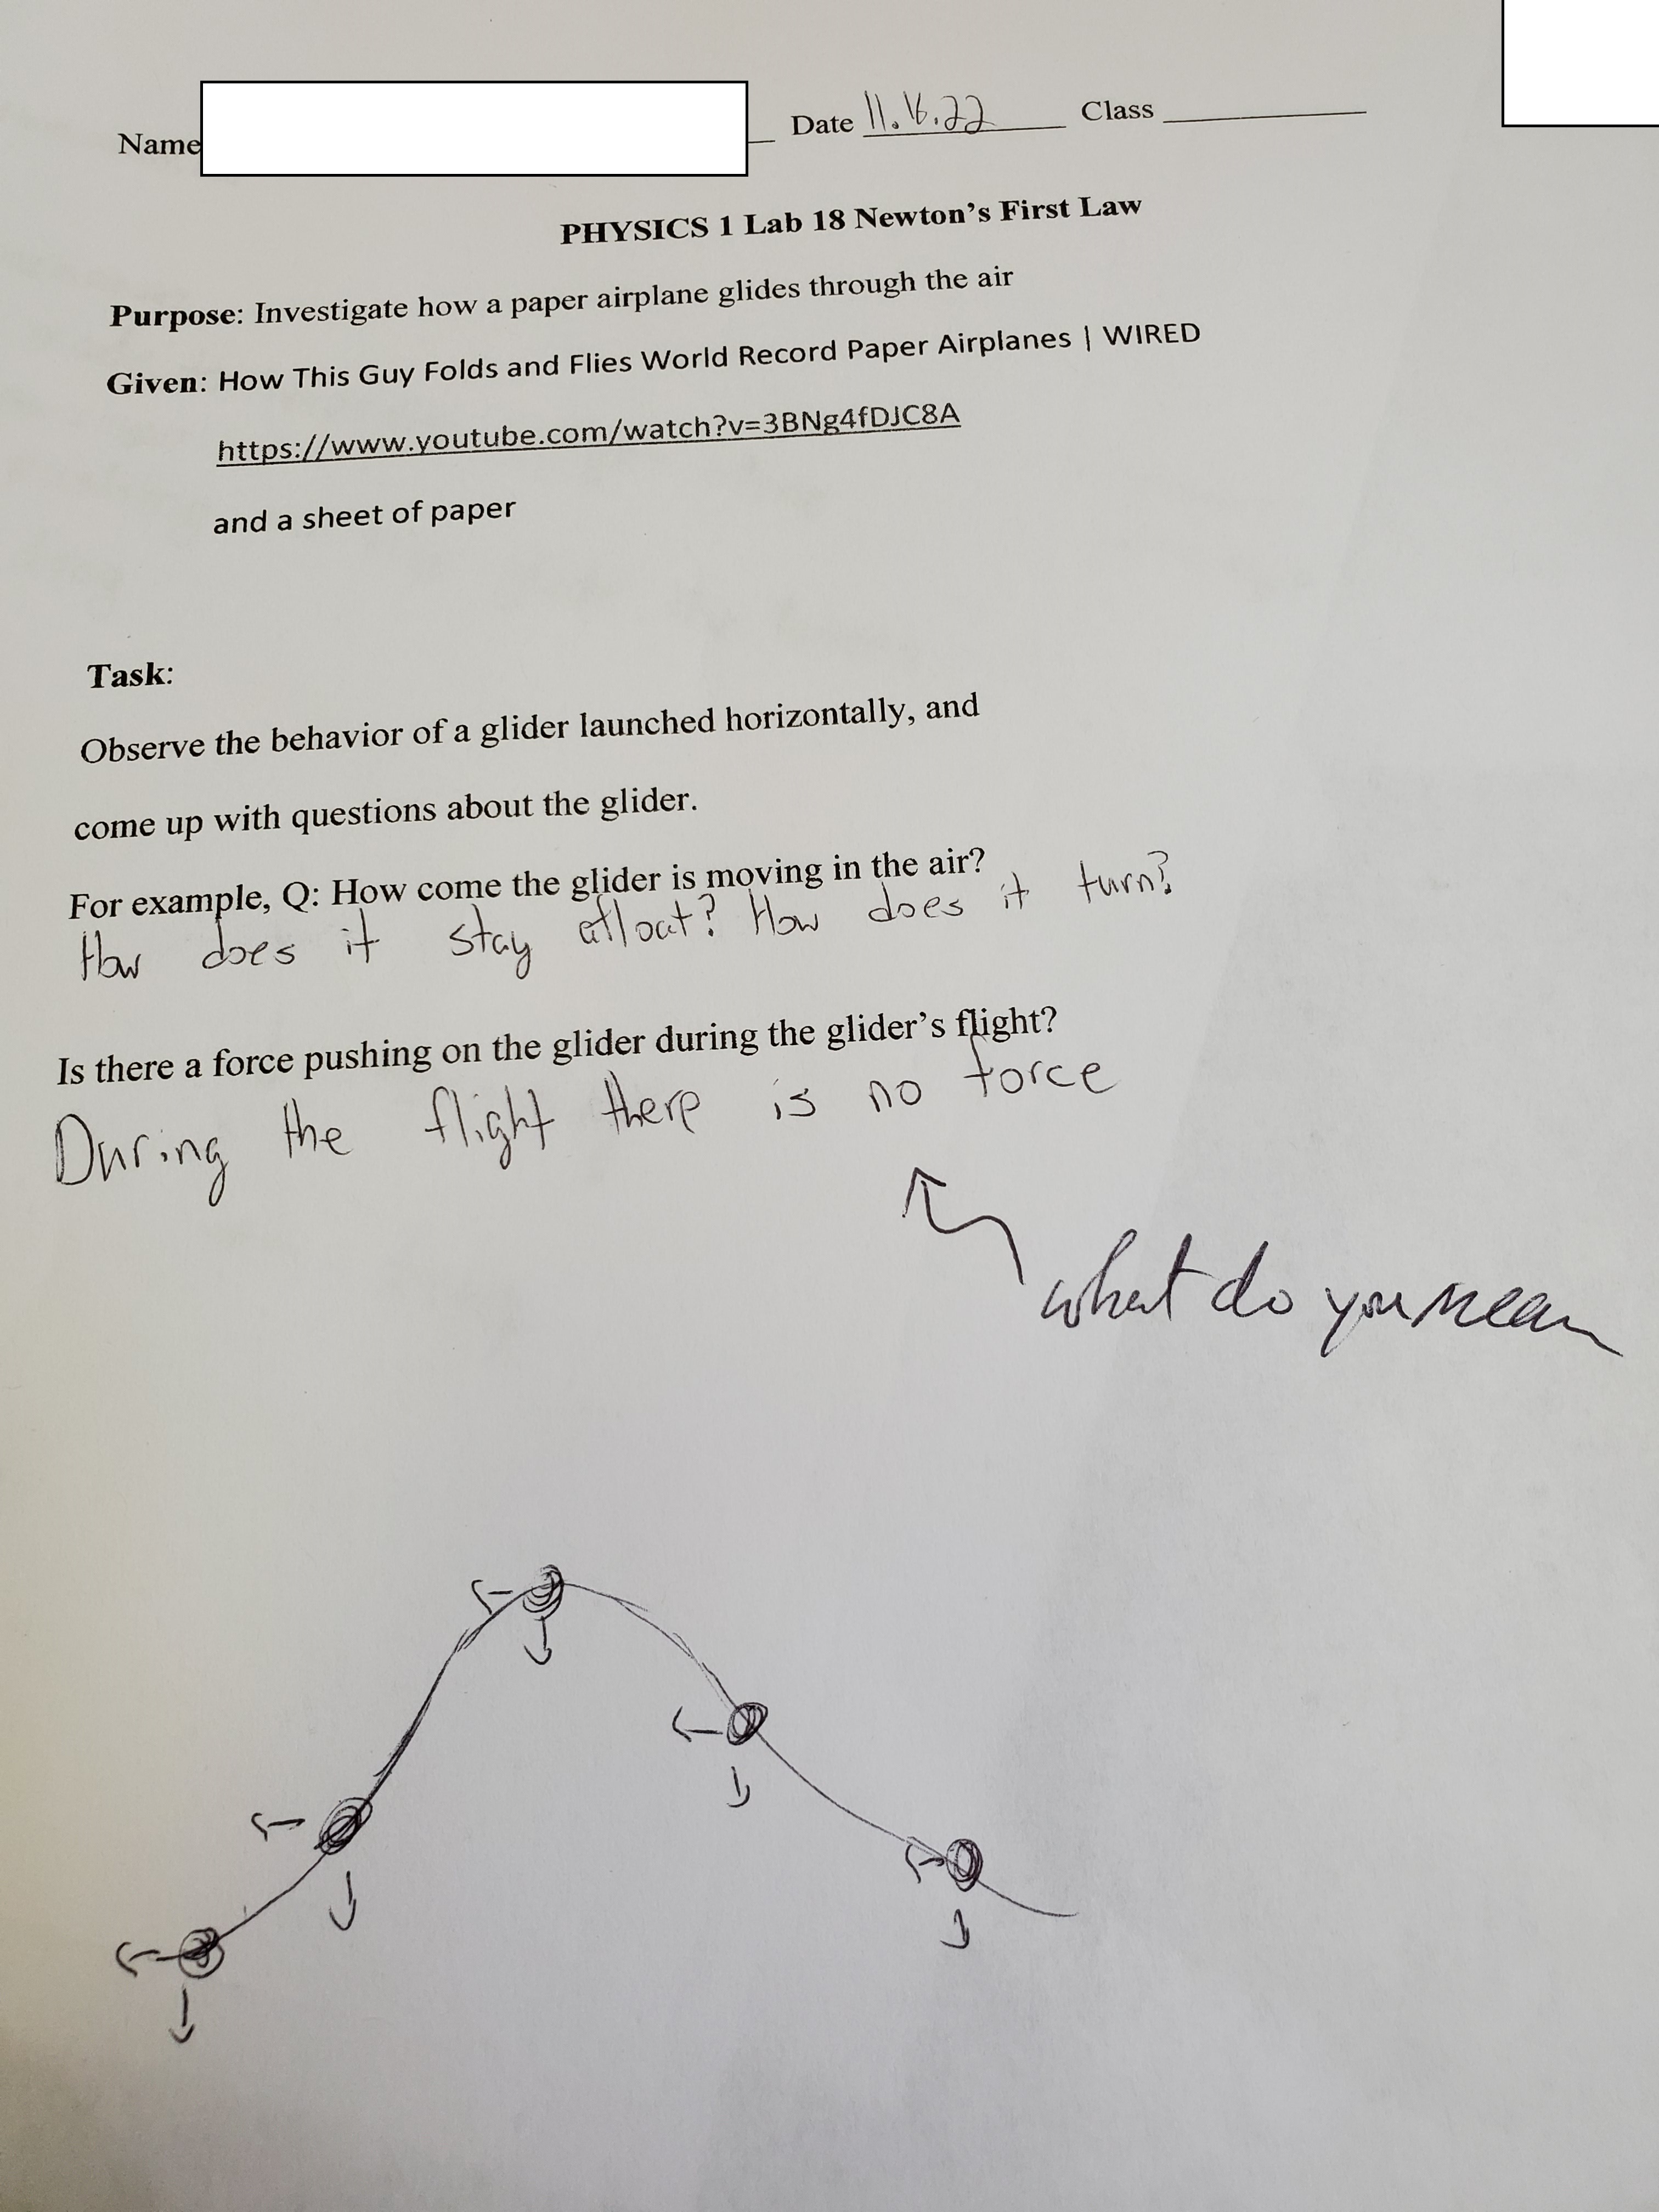 Name Date 11.16.22 Class
PHYSICS 1 Lab 18 Newton’s First Law
Purpose: Investigate how a paper airplane glides through the air
Given: How This Guy Folds and Flies World Record Paper Airplanes | WIRED
https://www.youtube.com/watch?v=3BNg4fDJC8A
and a sheet of paper
Task:
Observe the behavior of a glider launched horizontally, and
come up with questions about the glider.
For example, Q: How come the glider is moving in the air?
How does it stay afloat? How does it turn?
Is there a force pushing on the glider during the glider’s flight?
During the flight there is no force
what do you mean